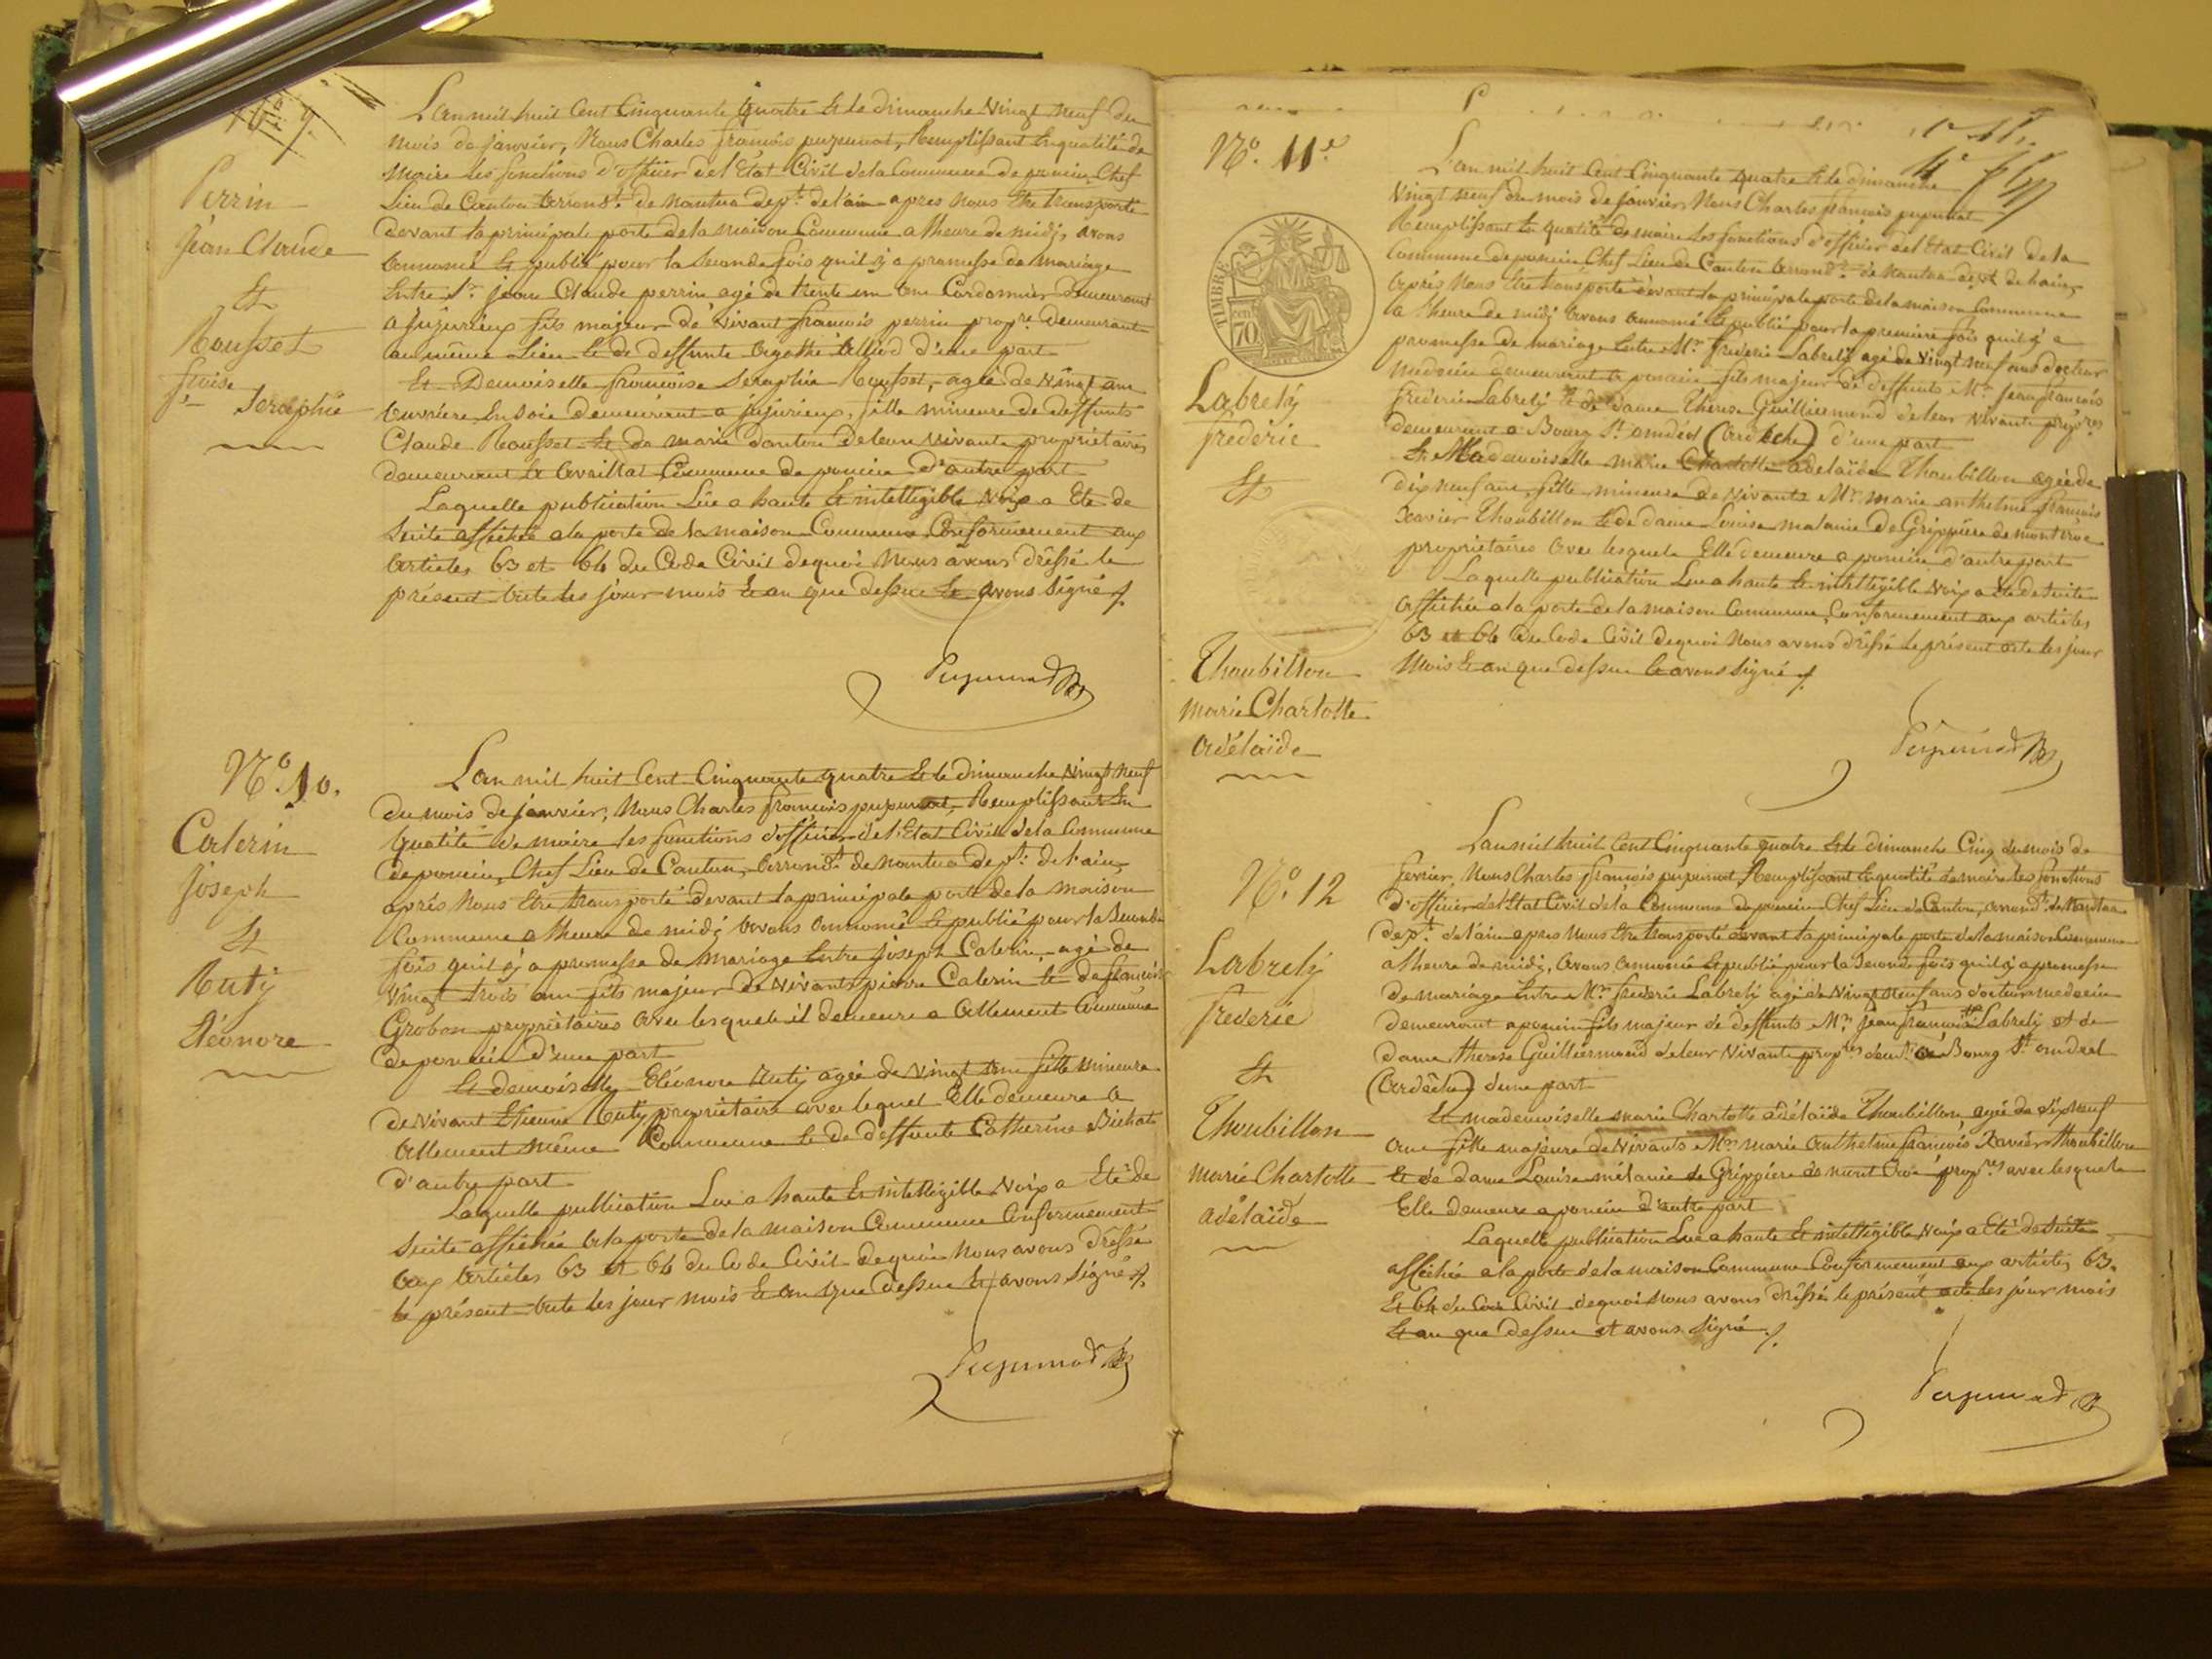 N° 9.
Perrin
Jean Claude
Et
Rousset
f.oise Seraphie
L'an mil huit Cent Cinquante quatre Et le dimanche vingt neuf du
mois de janvier, Nous Charles françois pugunat, Remplissant En qualité de
Maire les fonctions d'officier de l'Etat Civil de la Commune de poncin Chef
Lieu de Canton arrond.t de nantua dep.t de l'ain apres nous Etre transporté
devant la principale porte de la maison Commune a l'heure de midi, avons
annoncé Et publié pour la seconde fois qu'il y a promesse de mariage
Entre S.r jean Claude perrin agé de trente un ans Cordonnier demeurant
a jujurieux fils majeur de vivant françois perrin prop.re demeurant
au même Lieu Et de deffunte agathe Alliod d'une part
Et Demoiselle françoise Seraphie Rousset, agée de vingt ans
ouvrière En soie demeurant a jujurieux, fille mineure de deffunts
Claude Rousset Et de marie dantou de leur vivant propriétaires
demeurant à avrillat Commune de poncin d'autre part
Laquelle publication Lue a haute Et intelligible Voix a Eté de
suite affichée a la porte de la maison Commune Conformement aux
articles 63 et 64 du Code Civil de quoi Nous avons dréssé le
présent acte les jour mois Et an que dessus Et avons signé
N° 10.
Caterin
joseph
Et
Ruty
Eléonore
L'an mil huit Cent Cinquante quatre Et le dimanche vingt neuf
du mois de janvier, Nous Charles françois pugunat, Remplissant En
qualité de maire les fonctions d'officier de l'Etat Civil de la Commune
de poncin, Chef Lieu de Canton, arrond.t de nantua dep.t de l'ain,
aprés Nous Etre transporté devant la principale porte de la maison
Commune a l'heure de midi avons annoncé Et publié pour la seconde
fois qu'il y a promesse de mariage Entre joseph Caterin agé de
vingt trois ans fils majeur de vivants pierre Caterin Et de françoise
Grobon propriétaires avec lesquels il demeure a allement Commune
de poncin d'une part
Et demoiselle Eléonore Ruty agée de vingt ans fille mineure
de vivant Etienne Ruty propriétaire avec lequel Elle demeure a
allement même Commune Et de deffunte Catherine Bichat
d'autre part
Laquelle publication Lue a haute Et intelligible Voix a Eté de
suite affichée a la porte de la maison Commune Conformement
aux articles 63 et 64 du Code Civil de quoi Nous avons dréssé
le présent acte les jour mois Et an que dessus Et avons signé
N° 11e
TIMBRE
70
Labrely
frederic
Et
Thoubillon
marie Charlotte
adélaïde
L'an mil huit Cent Cinquante quatre Et le dimanche
vingt neuf du mois de janvier, Nous Charles françois pugunat
Remplissant En qualité de maire les fonctions d'officier de l'Etat Civil de la
Commune de poncin Chef Lieu de Canton arrond.t de nantua dep.t de l'ain,
aprés Nous Etre transporté devant la principale porte de la maison Commune
a l'heure de midi avons annoncé Et publié pour la premiere fois qu'il y a
promesse de mariage Entre M.r frederic Labrely agé de vingt neuf ans docteur
medecin demeurant a poncin fils majeur de deffunts M.r jean françois
frederic Labrely Et de dame Therese Guilliermond de leur vivant prop.res
demeurant a Bourg S.t andéol (ardéche) d'une part
Et Mademoiselle marie Charlotte adelaïde Thoubillon agée de
dix neuf ans, fille mineure de vivants M.r marie anthelme françois
Xavier Thoubillon Et de dame Louise melanie De Grippière de montcroc
propriétaires avec lesquels Elle demeure a poncin d'autre part
Laquelle publication Lue a haute Et intelligible Voix a Eté de suite
affichée a la porte de la maison Commune, Conformement aux articles
63 et 64 du Code Civil de quoi Nous avons dréssé le présent acte les jour
Mois Et an que dessus Et avons signé
N° 12
Labrely
frederic
Et
Thoubillon
marie Charlotte
adélaïde
L'an mil huit Cent Cinquante quatre Et le dimanche Cinq du mois de
fevrier, Nous Charles françois pugunat, Remplissant En qualité de maire les fonctions
d'officier de l'Etat Civil de la Commune de poncin Chef Lieu de Canton, arrond.t de Nantua
dep.t de l'ain apres Nous Etre transporté devant la principale porte de la maison Commune
a l'heure de midi, avons annoncé Et publié pour la seconde fois qu'il y a promesse
de mariage Entre M.r frederic Labrely agé de Vingt neuf ans docteur medecin
demeurant a poncin fils majeur de deffunts M.r jean françois Labrely et de
dame therese Guilliermond de leur vivant prop.res dem.t a Bourg S.t andeol
(ardêche) d'une part
Et mademoiselle marie Charlotte adélaïde Thoubillon, agée de dix neuf
ans fille majeure de vivants M.r marie anthelme françois Xavier Thoubillon
Et de dame Louise mélanie de Grippière de mont Croc prop.res avec lesquels
Elle demeure a poncin d'autre part
Laquelle publication Lue a haute Et intelligible Voix a Eté de suite
affichée a la porte de la maison Commune Conformement aux articles 63
Et 64 du Code Civil de quoi Nous avons dréssé le présent acte les jour mois
Et an que dessus et avons signé